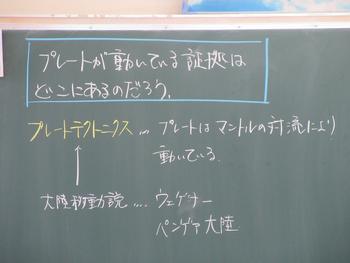 プレートが動いている証拠は
どこにあるのだろう。
プレートテクトニクス … プレートはマントルの対流により
動いている.
大陸移動説 …. ウェゲナー
パンゲア大陸